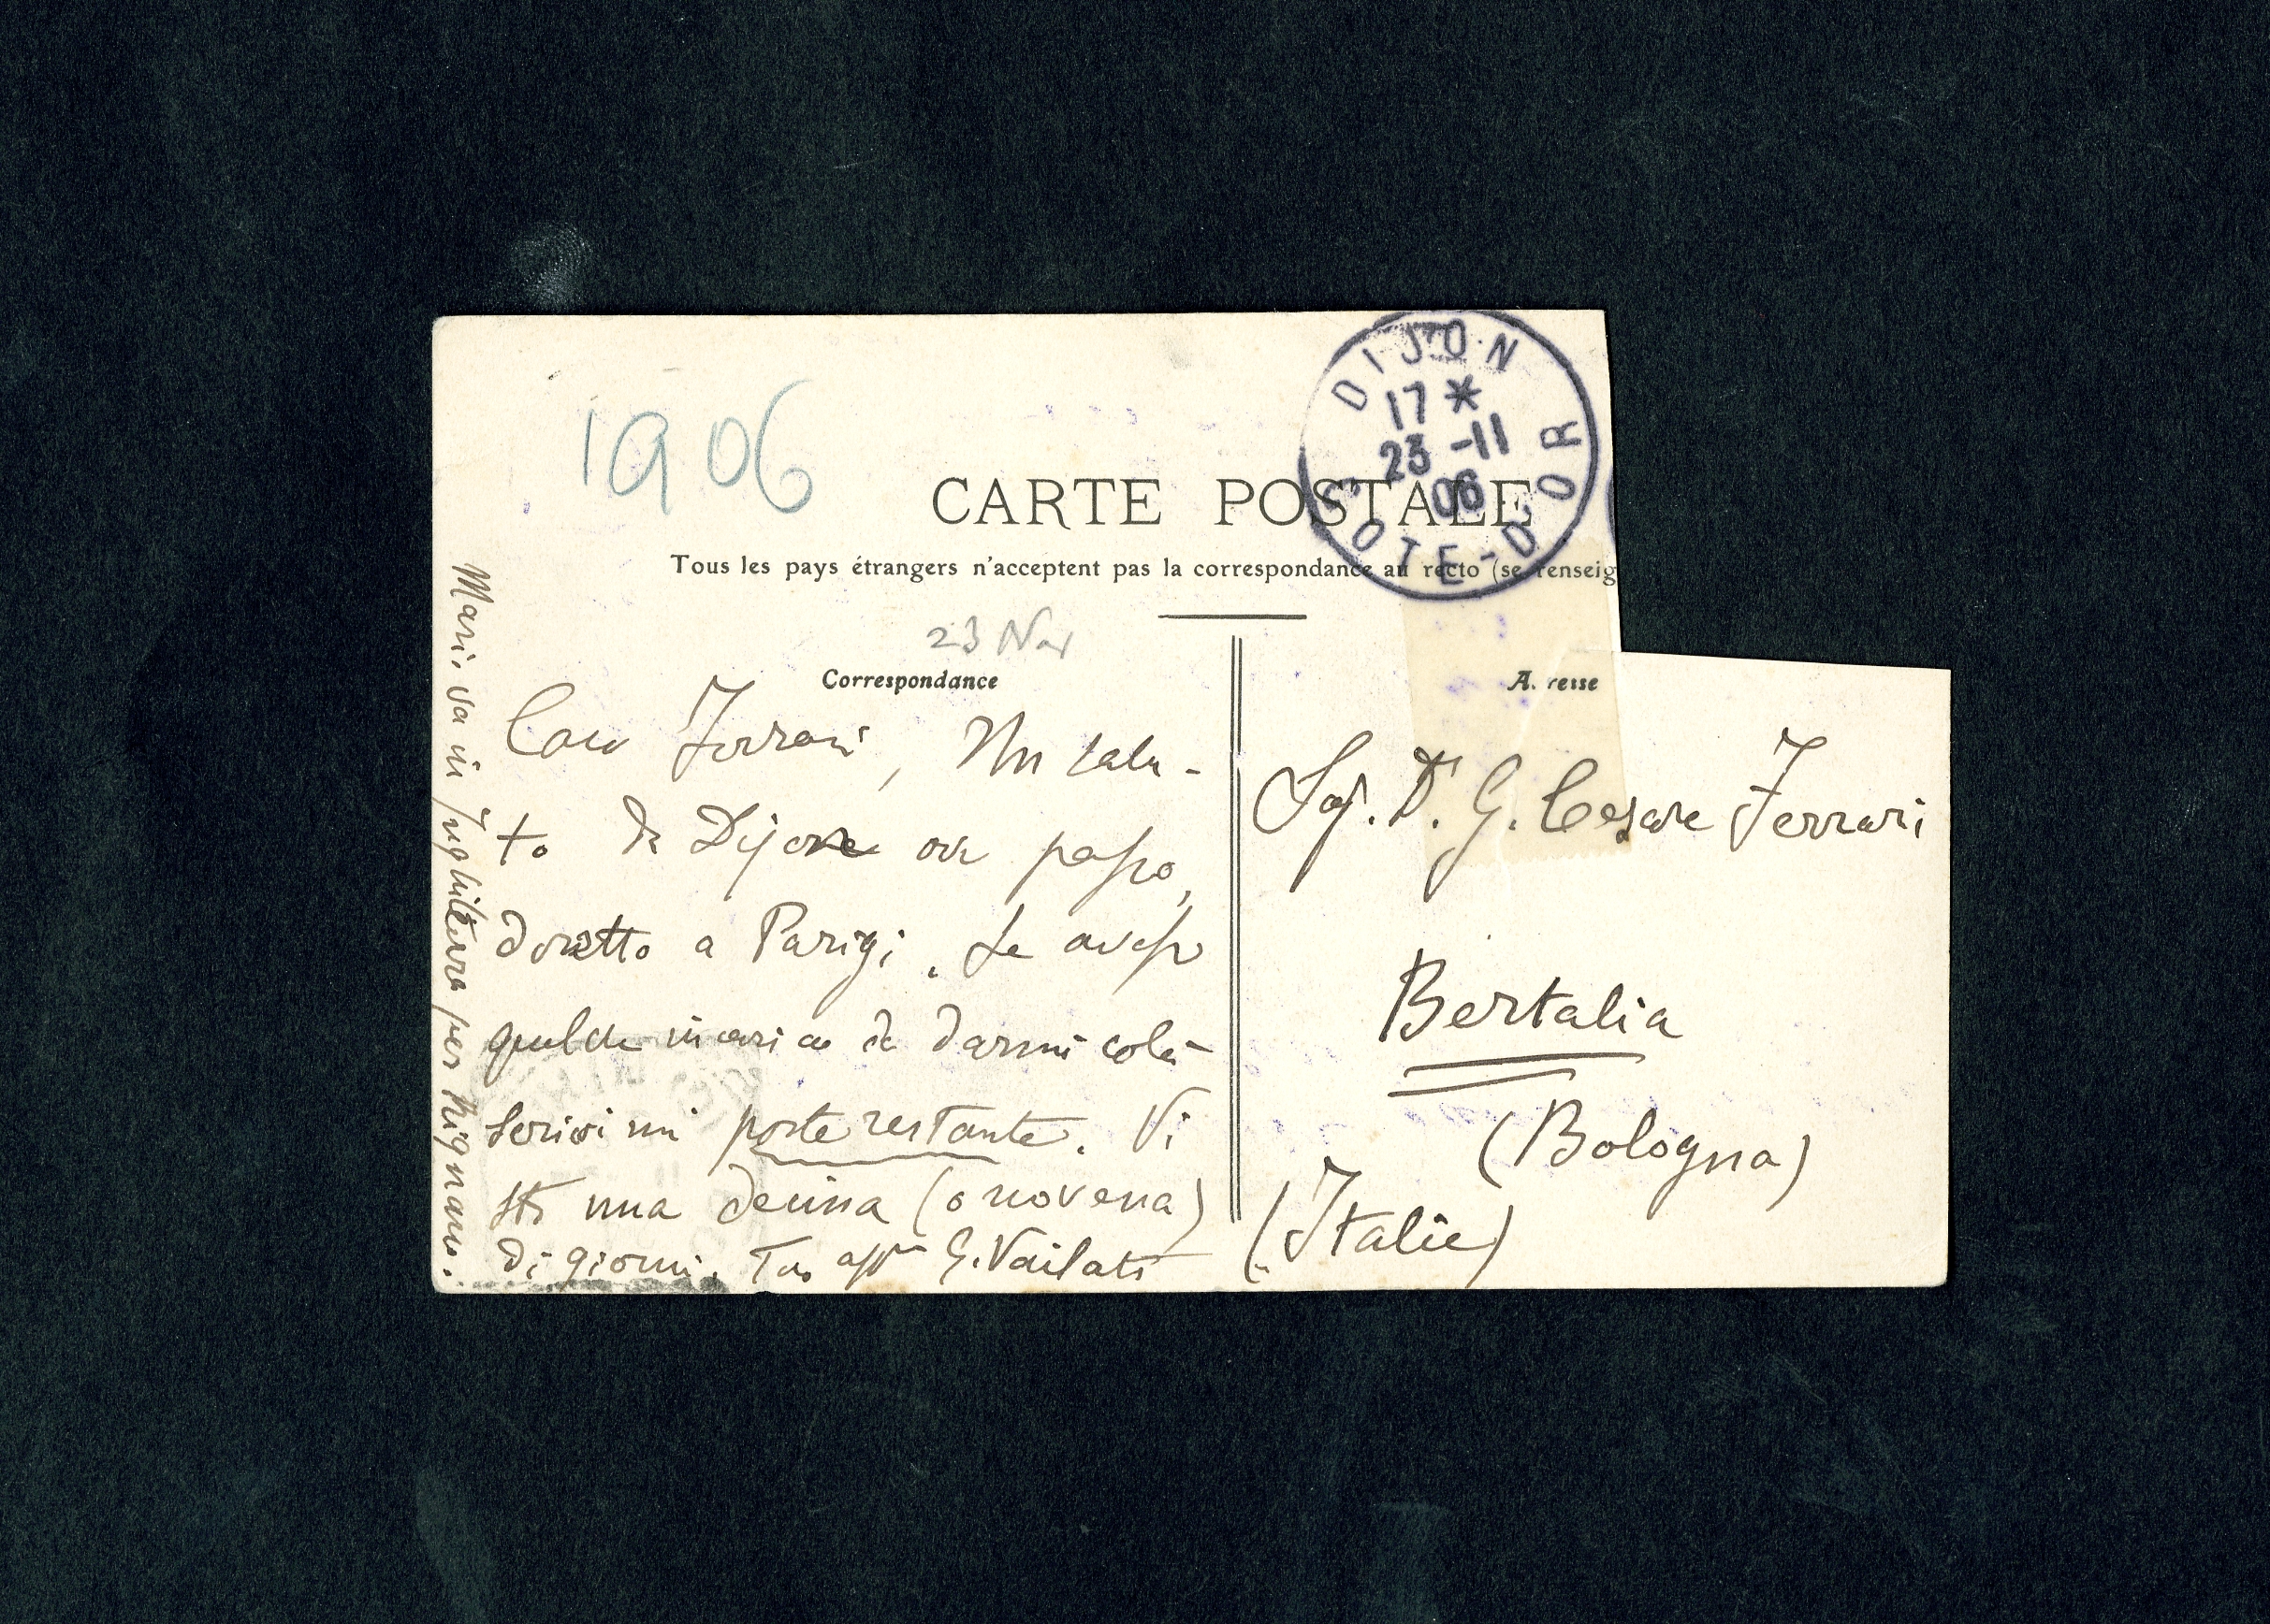 1906
DIJON
17 *
23 -11
06
COTE-D'OR
CARTE POSTALE
Tous les pays étrangers n'acceptent pas la correspondance au recto (se renseig
23 Nov
Correspondance
A. resse
Caro Ferrari, Un salu-
to da Dijon ove passo,
diretto a Parigi. Se avessi
qualche incarico da darmi colà
scrivimi poste restante. Vi
stò una decina (o novena)
di giorni. Tuo aff.mo G. Vailati
Mari. va in Inghilterra per Mignano.
Sig. Dr. G. Cesare Ferrari
Bertalia
(Bologna)
(Italie)